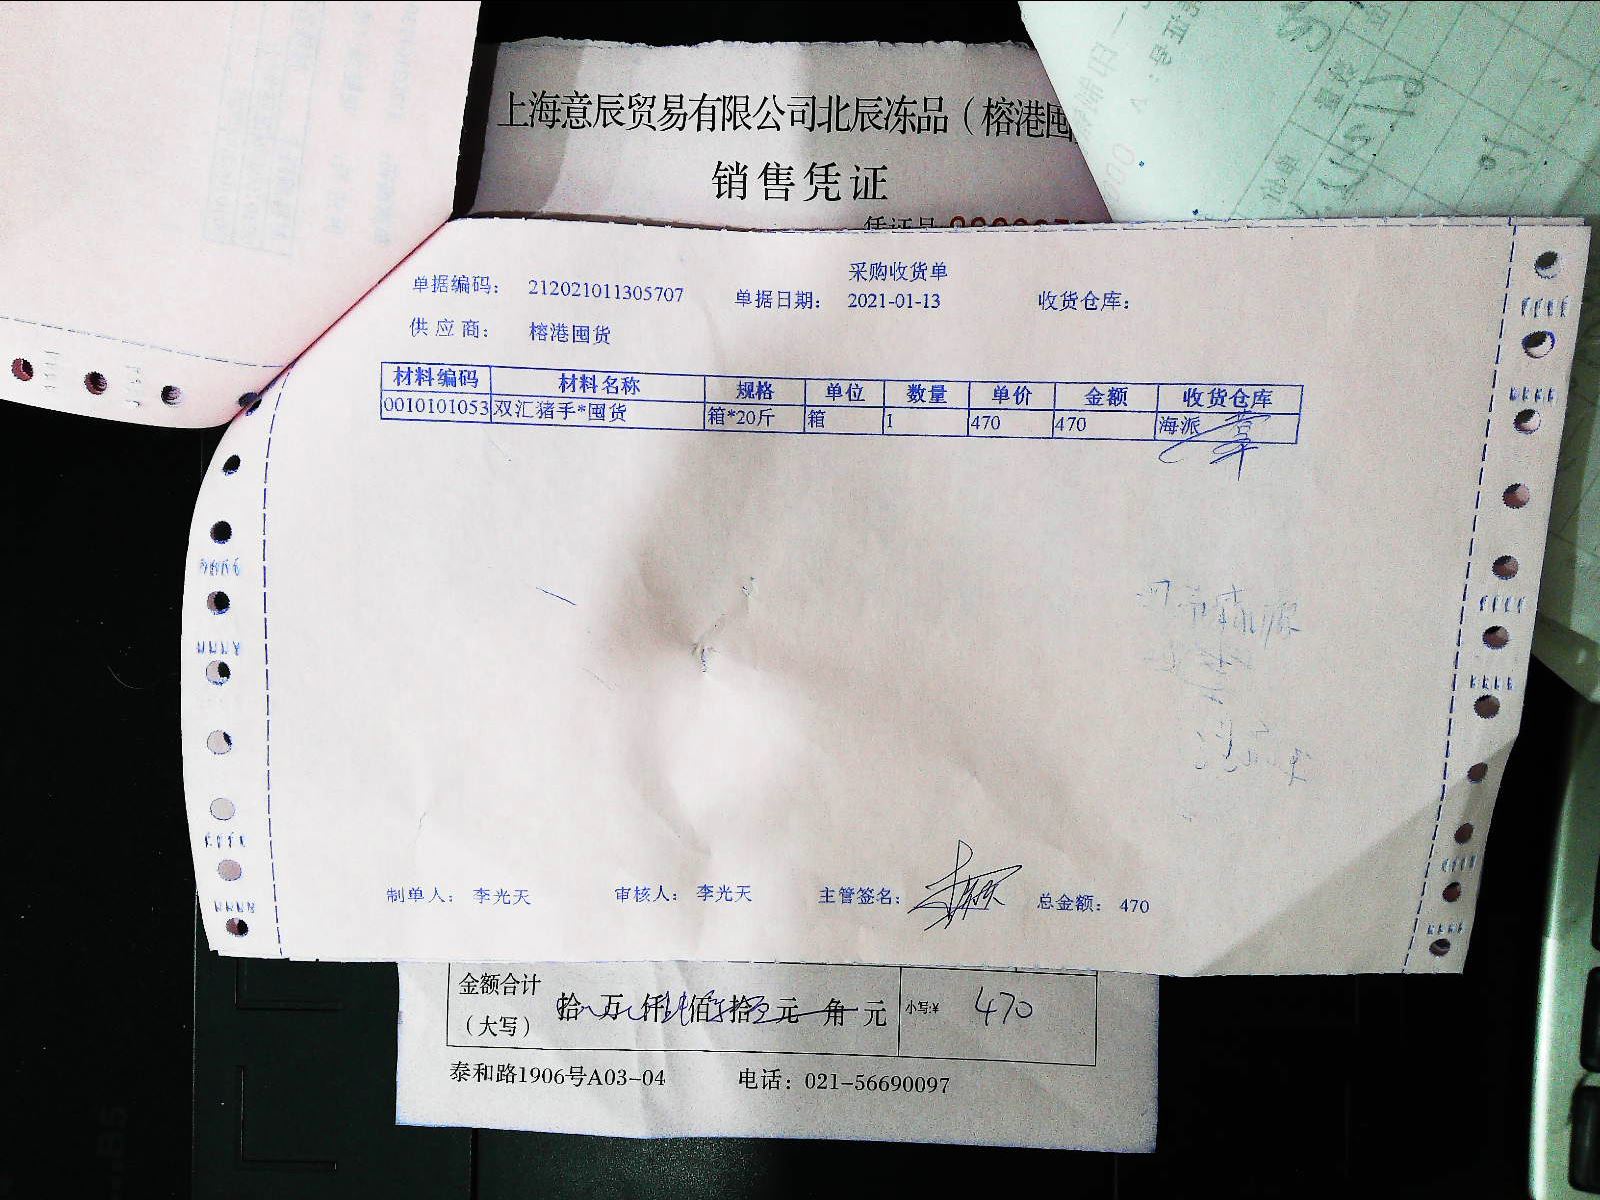 上海意辰贸易有限公司北辰冻品（榕港囤
销售凭证
凭证号
采购收货单
单据编码： 212021011305707 单据日期： 2021-01-13 收货仓库：
供应商： 榕港囤货
材料编码 材料名称 规格 单位 数量 单价 金额 收货仓库
0010101053 双汇猪手*囤货 箱*20斤 箱 1 470 470 海派
制单人： 李光天 审核人： 李光天 主管签名： 总金额： 470
金额合计
（大写） 拾 万 仟 佰 拾 元 角 元 小写:¥ 470
泰和路1906号A03-04 电话：021-56690097